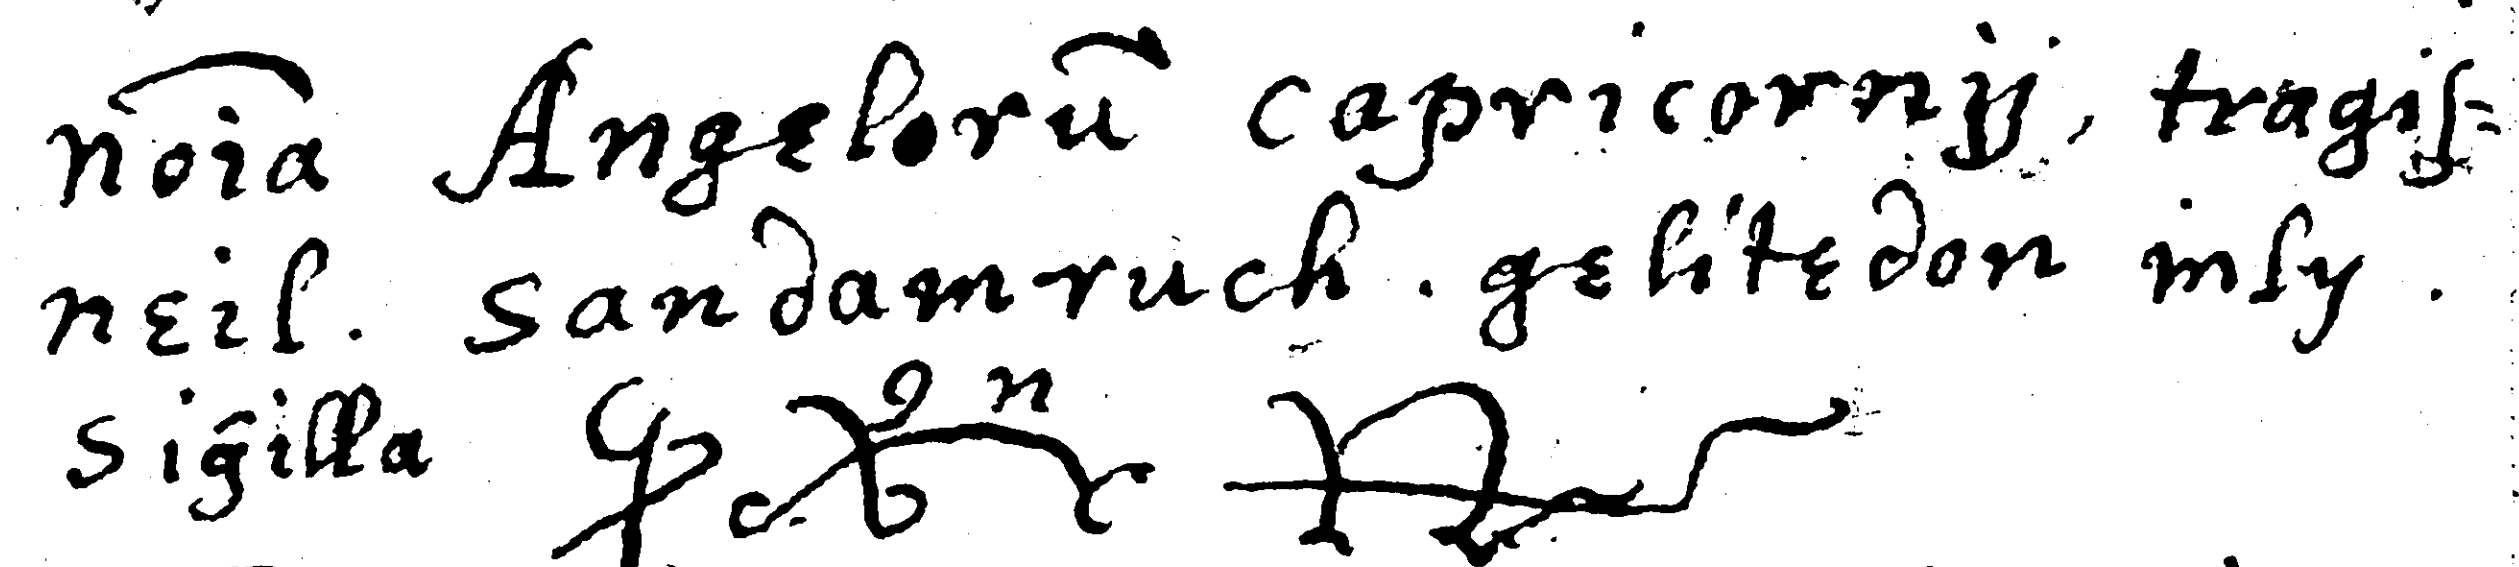 noīa Angelorū capricornij, tragis=
neil. sandamruch. gelitedon misy.
sigilla